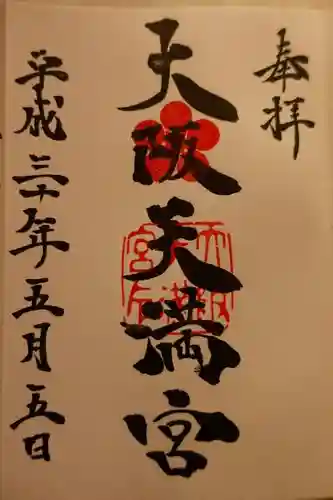 奉拝
大阪天満宮
平成三十年五月五日